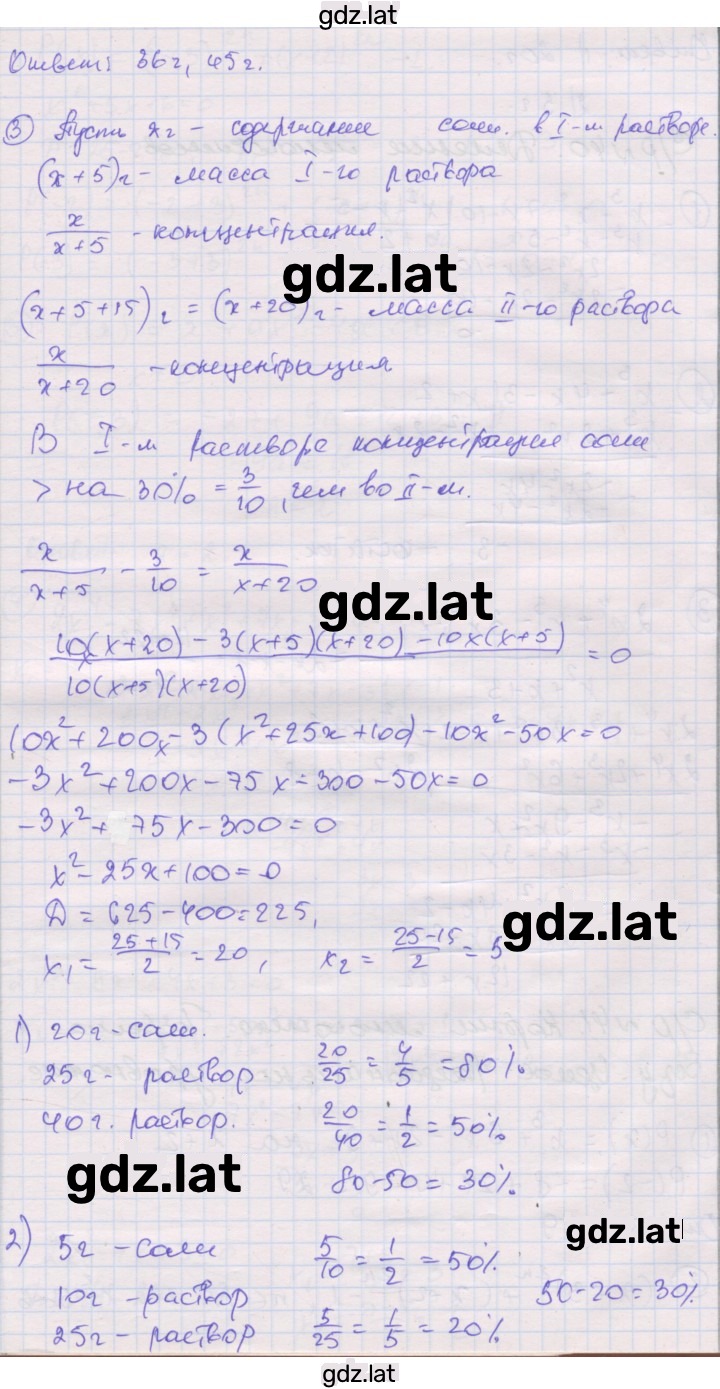 gdz.lat
Ответ: 36г, 45г.
③ Пусть xг – содержание соли в I-м растворе.
(x+5)г – масса I-го раствора
x/(x+5) – концентрация.
gdz.lat
(x+5+15)г = (x+20)г – масса II-го раствора
x/(x+20) – концентрация
В I-м растворе концентрация соли
> на 30% = 3/10, чем во II-м.
x/(x+5) - 3/10 = x/(x+20)
gdz.lat
(10(x+20) - 3(x+5)(x+20) - 10x(x+5))/(10(x+5)(x+20)) = 0
10x² + 200x - 3(x²+25x+100) - 10x² - 50x = 0
-3x² + 200x - 75x - 300 - 50x = 0
-3x² + 75x - 300 = 0
x² - 25x + 100 = 0
gdz.lat
D = 625 - 400 = 225,
x₁ = (25+15)/2 = 20, x₂ = (25-15)/2 = 5
1) 20г – соли.
25г – раствор 20/25 = 4/5 = 80%.
40г. раствор. 20/40 = 1/2 = 50%
gdz.lat
80-50 = 30%.
gdz.lat
2) 5г – соли 5/10 = 1/2 = 50%
10г – раствор 50-20 = 30%
25г – раствор 5/25 = 1/5 = 20%
gdz.lat